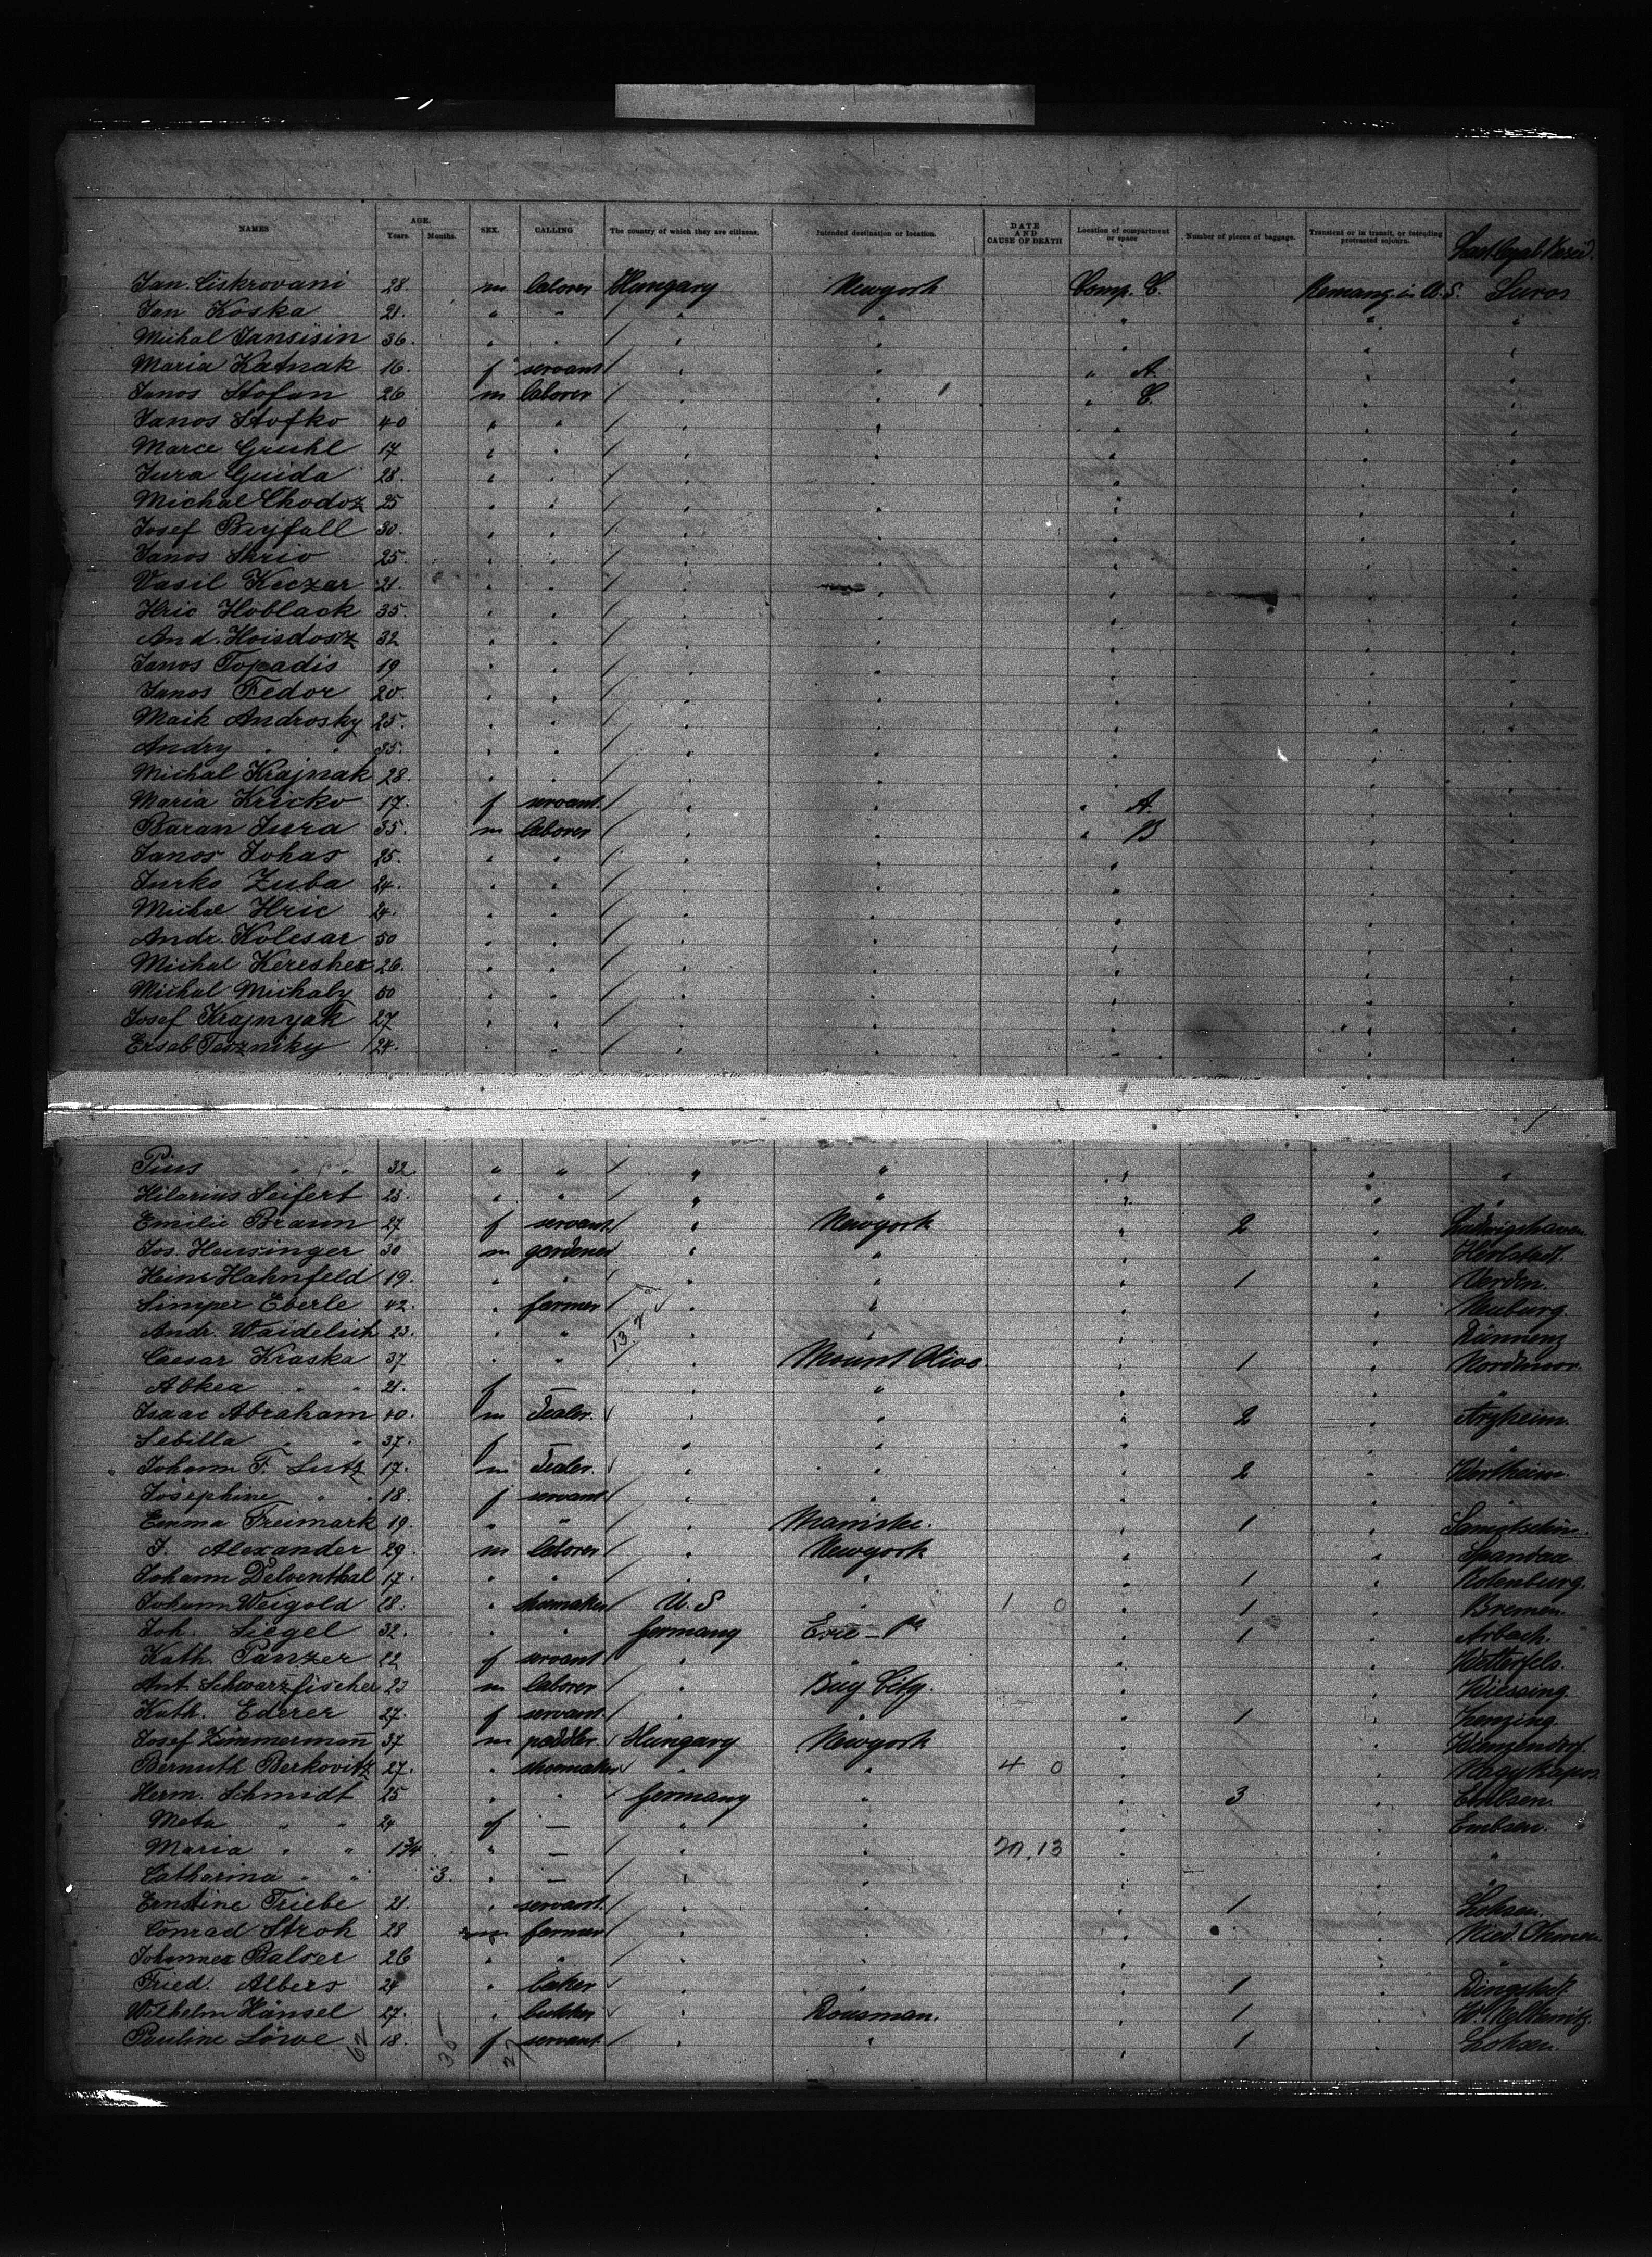 NAMES AGE. Years. Months. SEX. CALLING The country of which they are citizens. Intended destination or location. DATE AND CAUSE OF DEATH Location of compartment or space Number of pieces of baggage. Transient or in transit, or intending protracted sojourn. Last legal Resid.
Jan. Ciskrovani 28. m laborer Hungary Newyork Comp. C. Remang. in U.S. Suros
Jan Koska 21. " " " " " " "
Michal Jansisin 36. " " " " " " "
Maria Katnak 16. f servant " " " A. " "
Janos Stofan 26 m laborer " " " C. " "
Janos Stofko 40 " " " " " " "
Marce Gruhl 17 " " " " " " "
Jura Guida 28. " " " " " " "
Michal Chodoz 25 " " " " " " "
Josef Bryfall 30. " " " " " " "
Janos Skrio 25. " " " " " " "
Vasil Keczar 21. " " " " " " "
Hric Hoblack 35. " " " " " " "
And. Hoisdosz 32 " " " " " " "
Janos Topadis 19 " " " " " " "
Janos Fedor 20. " " " " " " "
Maik Androsky 25. " " " " " " "
Andry " " 35. " " " " " " "
Michal Krajnak 28. " " " " " " "
Maria Kricko 17. f servant. " " " A. " "
Baran Jura 35. m laborer " " " B " "
Janos Johas 25. " " " " " " "
Jurko Zuba 24. " " " " " " "
Michal Hric 24. " " " " " " "
Andr. Kolesar 50 " " " " " " "
Michal Kereshes 26. " " " " " " "
Michal Michaly 50 " " " " " " "
Josef Krajnyak 27 " " " " " " "
Erseb Teszniky 24. " " " " " " "
Pius " " 32 " " " " " " "
Hilarius Seifert 23. " " " " " " "
Emilie Braun 27 f servant " Newyork " 2 " Ludwigshaven
Jos. Heusinger 30 m gardener " " " "
Heinr Hahnfeld 19. " " " " " 1 " Verden.
Simper Eberle 42. " farmer " " " " Neuburg.
Andr. Waidelich 23. " " 13.7 " " " " Dürmenz
Caesar Kraska 37 " " " Mount Olive. " 1 " Nordmoor
Abkea " " 21. f — " " " " "
Isaac Abraham 40. m Dealer. " " " 2 " Arzheim.
Sebilla " " 37. f — " " " " "
" Johann F. Lutz 17. m Dealer. " " " 2 " Wertheim.
Josephine " " 18. f servant " " " " "
Emma Freimark 19. " " " Manistee. " 1 "
J. Alexander 29. m laborer " Newyork " " Spandau
Johann Delventhal 17. " " " " " 1 " Rotenburg.
Johann Weigold 28. " shoemaker U.S " 1 0 " 1 " Bremen.
Joh. Siegel 32. " " Germany Erie - Pa " 1 " Arbach.
Kath. Panzer 22 f servant " " " " Wetterfels.
Ant. Schwarzfischer 23 m laborer " Bay City. " " Wiessing.
Kath. Ederer 27. f servant. " " " 1 " Penzing.
Josef Zimmermann 37 m peddler. Hungary Newyork " "
Bernuth Berkovitz 27. " shoemaker " " 4 0 " " Nagykapos.
Herm. Schmidt 25 " " Germany " " 3 " Embsen.
Meta " " 24 f — " " " " Embsen. "
Maria " " 1 3/4 " — " " 20.13 " " "
Catharina " " 3. " — " " " " "
Ernstine Triebe 21. " servant. " " " 1 " Lohsen.
Conrad Stroh 28 m farmer " " " " " Nied. Ohmen.
Johannes Balser 26 " " " " " " "
Fried. Albers 24 " baker " " " 1 "
Wilhelm Hänsel 27. " butcher " Dousman. " 1 "
Pauline Lörve 18. f servant. " " " 1 " Lohsen.
62 35 27